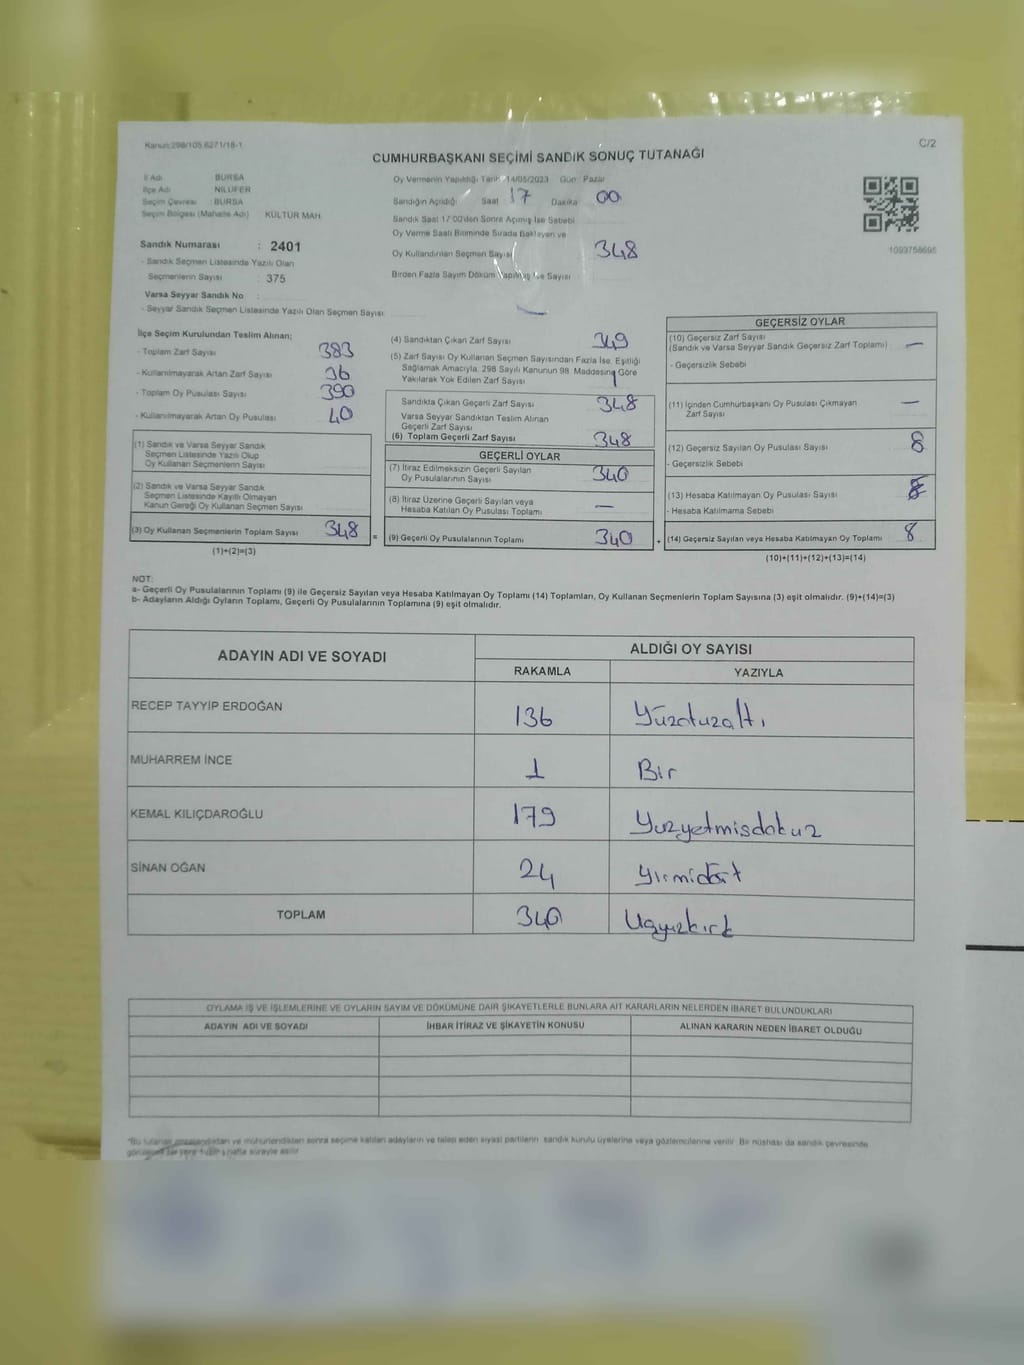 Kanun:298/105,6271/18-1
C/2
CUMHURBAŞKANI SEÇİMİ SANDIK SONUÇ TUTANAĞI
İl Adı BURSA
İlçe Adı NİLÜFER
Seçim Çevresi : BURSA
Seçim Bölgesi (Mahalle Adı) KÜLTÜR MAH.
Oy Vermenin Yapıldığı Tarih 14/05/2023 Gün Pazar
Sandığın Açıldığı Saat 17 Dakika 00
Sandık Saat 17:00'den Sonra Açılmış İse Sebebi
Oy Verme Saati Bitiminde Sırada Bekleyen ve
Oy Kullandırılan Seçmen Sayısı 348
Birden Fazla Sayım Döküm Yapılmış İse Sayısı
1093758695
Sandık Numarası : 2401
- Sandık Seçmen Listesinde Yazılı Olan
Seçmenlerin Sayısı : 375
Varsa Seyyar Sandık No :
- Seyyar Sandık Seçmen Listesinde Yazılı Olan Seçmen Sayısı:
İlçe Seçim Kurulundan Teslim Alınan;
- Toplam Zarf Sayısı 383
- Kullanılmayarak Artan Zarf Sayısı 36
- Toplam Oy Pusulası Sayısı 390
- Kullanılmayarak Artan Oy Pusulası 40
(1) Sandık ve Varsa Seyyar Sandık
Seçmen Listesinde Yazılı Olup
Oy Kullanan Seçmenlerin Sayısı
(2) Sandık ve Varsa Seyyar Sandık
Seçmen Listesinde Kayıtlı Olmayan
Kanun Gereği Oy Kullanan Seçmen Sayısı
(3) Oy Kullanan Seçmenlerin Toplam Sayısı 348
(1)+(2)=(3)
(4) Sandıktan Çıkan Zarf Sayısı 349
(5) Zarf Sayısı Oy Kullanan Seçmen Sayısından Fazla İse, Eşitliği
Sağlamak Amacıyla, 298 Sayılı Kanunun 98. Maddesine Göre
Yakılarak Yok Edilen Zarf Sayısı 1
Sandıkta Çıkan Geçerli Zarf Sayısı 348
Varsa Seyyar Sandıktan Teslim Alınan
Geçerli Zarf Sayısı
(6) Toplam Geçerli Zarf Sayısı 348
GEÇERLİ OYLAR
(7) İtiraz Edilmeksizin Geçerli Sayılan
Oy Pusulalarının Sayısı 340
(8) İtiraz Üzerine Geçerli Sayılan veya
Hesaba Katılan Oy Pusulası Toplamı —
= (9) Geçerli Oy Pusulalarının Toplamı 340
GEÇERSİZ OYLAR
(10) Geçersiz Zarf Sayısı
(Sandık ve Varsa Seyyar Sandık Geçersiz Zarf Toplamı) —
- Geçersizlik Sebebi
(11) İçinden Cumhurbaşkanı Oy Pusulası Çıkmayan
Zarf Sayısı —
(12) Geçersiz Sayılan Oy Pusulası Sayısı 8
- Geçersizlik Sebebi
(13) Hesaba Katılmayan Oy Pusulası Sayısı
- Hesaba Katılmama Sebebi
+ (14) Geçersiz Sayılan veya Hesaba Katılmayan Oy Toplamı 8
(10)+(11)+(12)+(13)=(14)
NOT:
a- Geçerli Oy Pusulalarının Toplamı (9) ile Geçersiz Sayılan veya Hesaba Katılmayan Oy Toplamı (14) Toplamları, Oy Kullanan Seçmenlerin Toplam Sayısına (3) eşit olmalıdır. (9)+(14)=(3)
b- Adayların Aldığı Oyların Toplamı, Geçerli Oy Pusulalarının Toplamına (9) eşit olmalıdır.
ADAYIN ADI VE SOYADI ALDIĞI OY SAYISI
RAKAMLA YAZIYLA
RECEP TAYYİP ERDOĞAN 136 Yüzotuzaltı
MUHARREM İNCE 1 Bir
KEMAL KILIÇDAROĞLU 179 Yuzyetmisdokuz
SİNAN OĞAN 24 Yirmidört
TOPLAM 340 Uçyuzkırk
OYLAMA İŞ VE İŞLEMLERİNE VE OYLARIN SAYIM VE DÖKÜMÜNE DAİR ŞİKAYETLERLE BUNLARA AİT KARARLARIN NELERDEN İBARET BULUNDUKLARI
ADAYIN ADI VE SOYADI İHBAR İTİRAZ VE ŞİKAYETİN KONUSU ALINAN KARARIN NEDEN İBARET OLDUĞU
*Bu tutanak imzalandıktan ve mühürlendikten sonra seçime katılan adayların ve talep eden siyasi partilerin sandık kurulu üyelerine veya gözlemcilerine verilir. Bir nüshası da sandık çevresinde